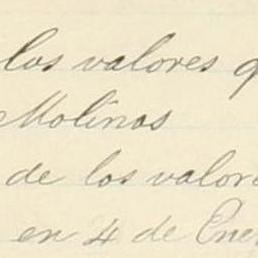 los valores q
Molinos
de los valore
en 4 de Ener